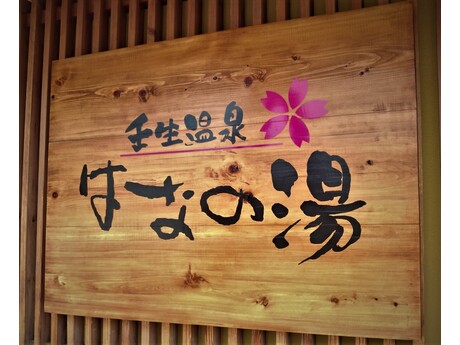 壬生温泉
はなの湯